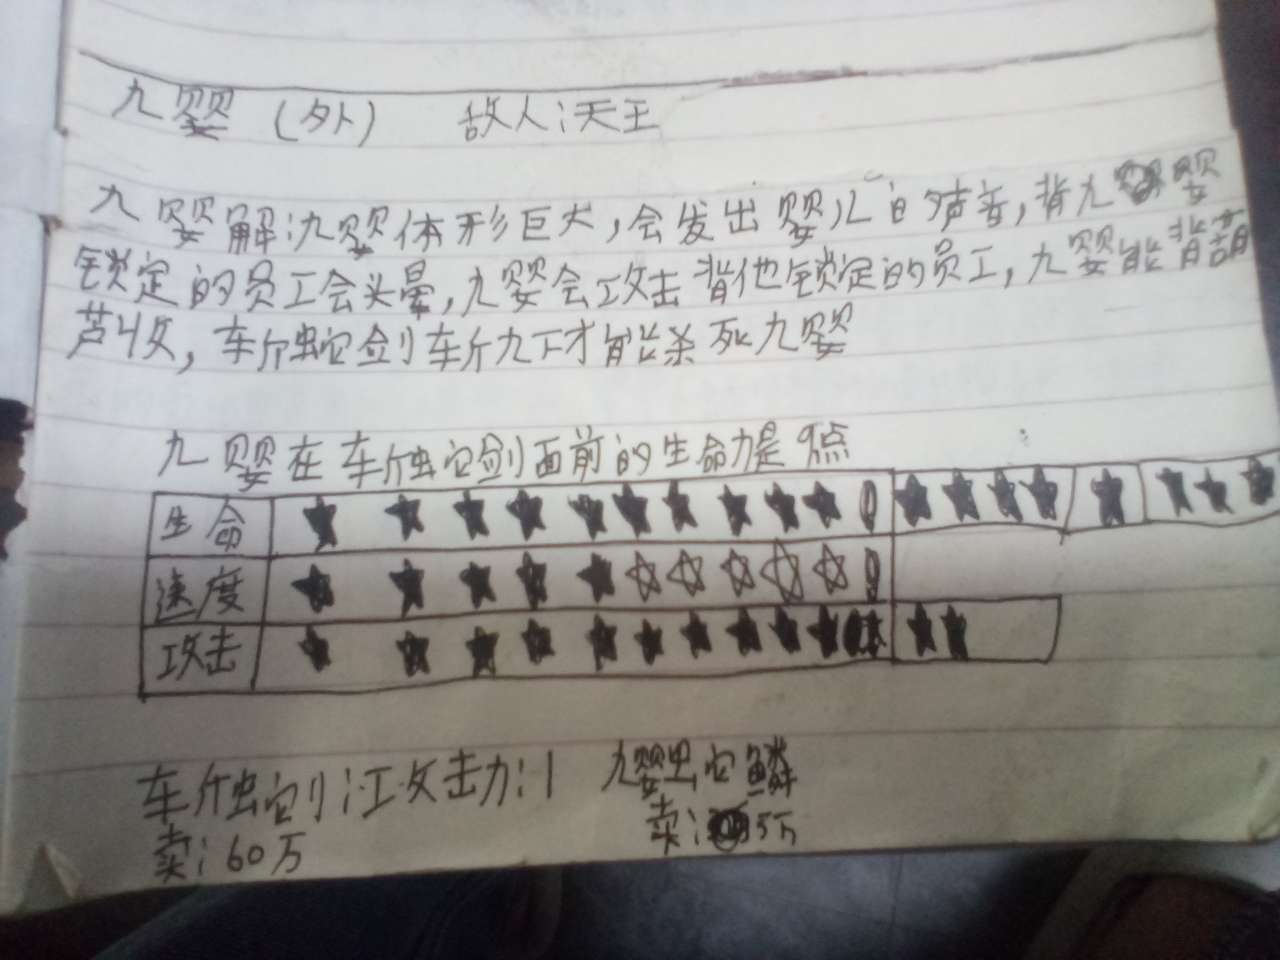 九婴（外） 敌人：天王
九婴解：九婴体形巨大，会发出婴儿的声音，背九婴
锁定的员工会头晕，九婴会攻击背他锁定的员工，九婴能背葫
芦收，斩蛇剑斩九下才能杀死九婴
九婴在斩蛇剑面前的生命力是9点
生命
速度
攻击
斩蛇剑：攻击力：1 九婴蛇鳞
卖：60万 卖：5万